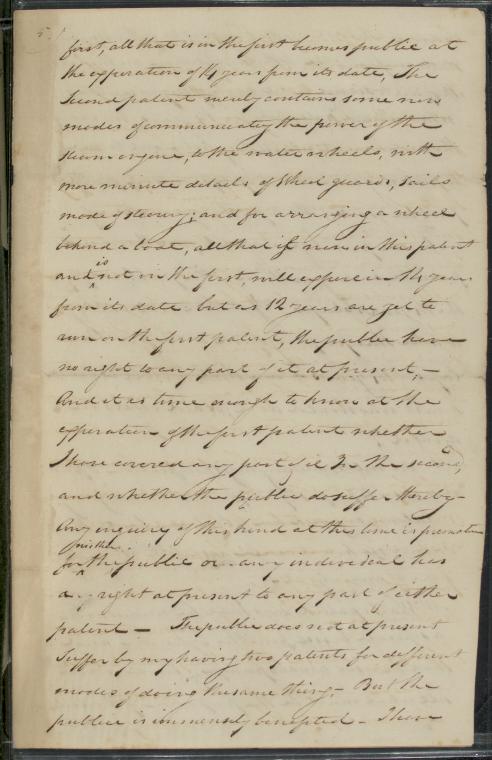 5
first, all that is in the first becomes public at
the experation of 14 years from its date, The
Second patent merely contains some new
modes of communicating the power of the
steam engine, to the water wheels, with
more minute details of wheel guards, Sails
mode of steering; and for arranging a wheel
behind a boat, all that is new in this patent
and is not in the first, will expire in 14 years
from its date but as 12 years are yet to
run on the first patent, the public have
no right to any part of it at present, –
And it is time enough to know at the
experation of the first patent whether
I have covered any part of it In the second,
and whether the public do suffer thereby –
Any enquiry of this kind at this time is premature
for neither the public or any individual has
a right at present to any part of either
patent – The public does not at present
Suffer by my having two patents for different
modes of doing the same thing – But the
public is immensely benefited – I have